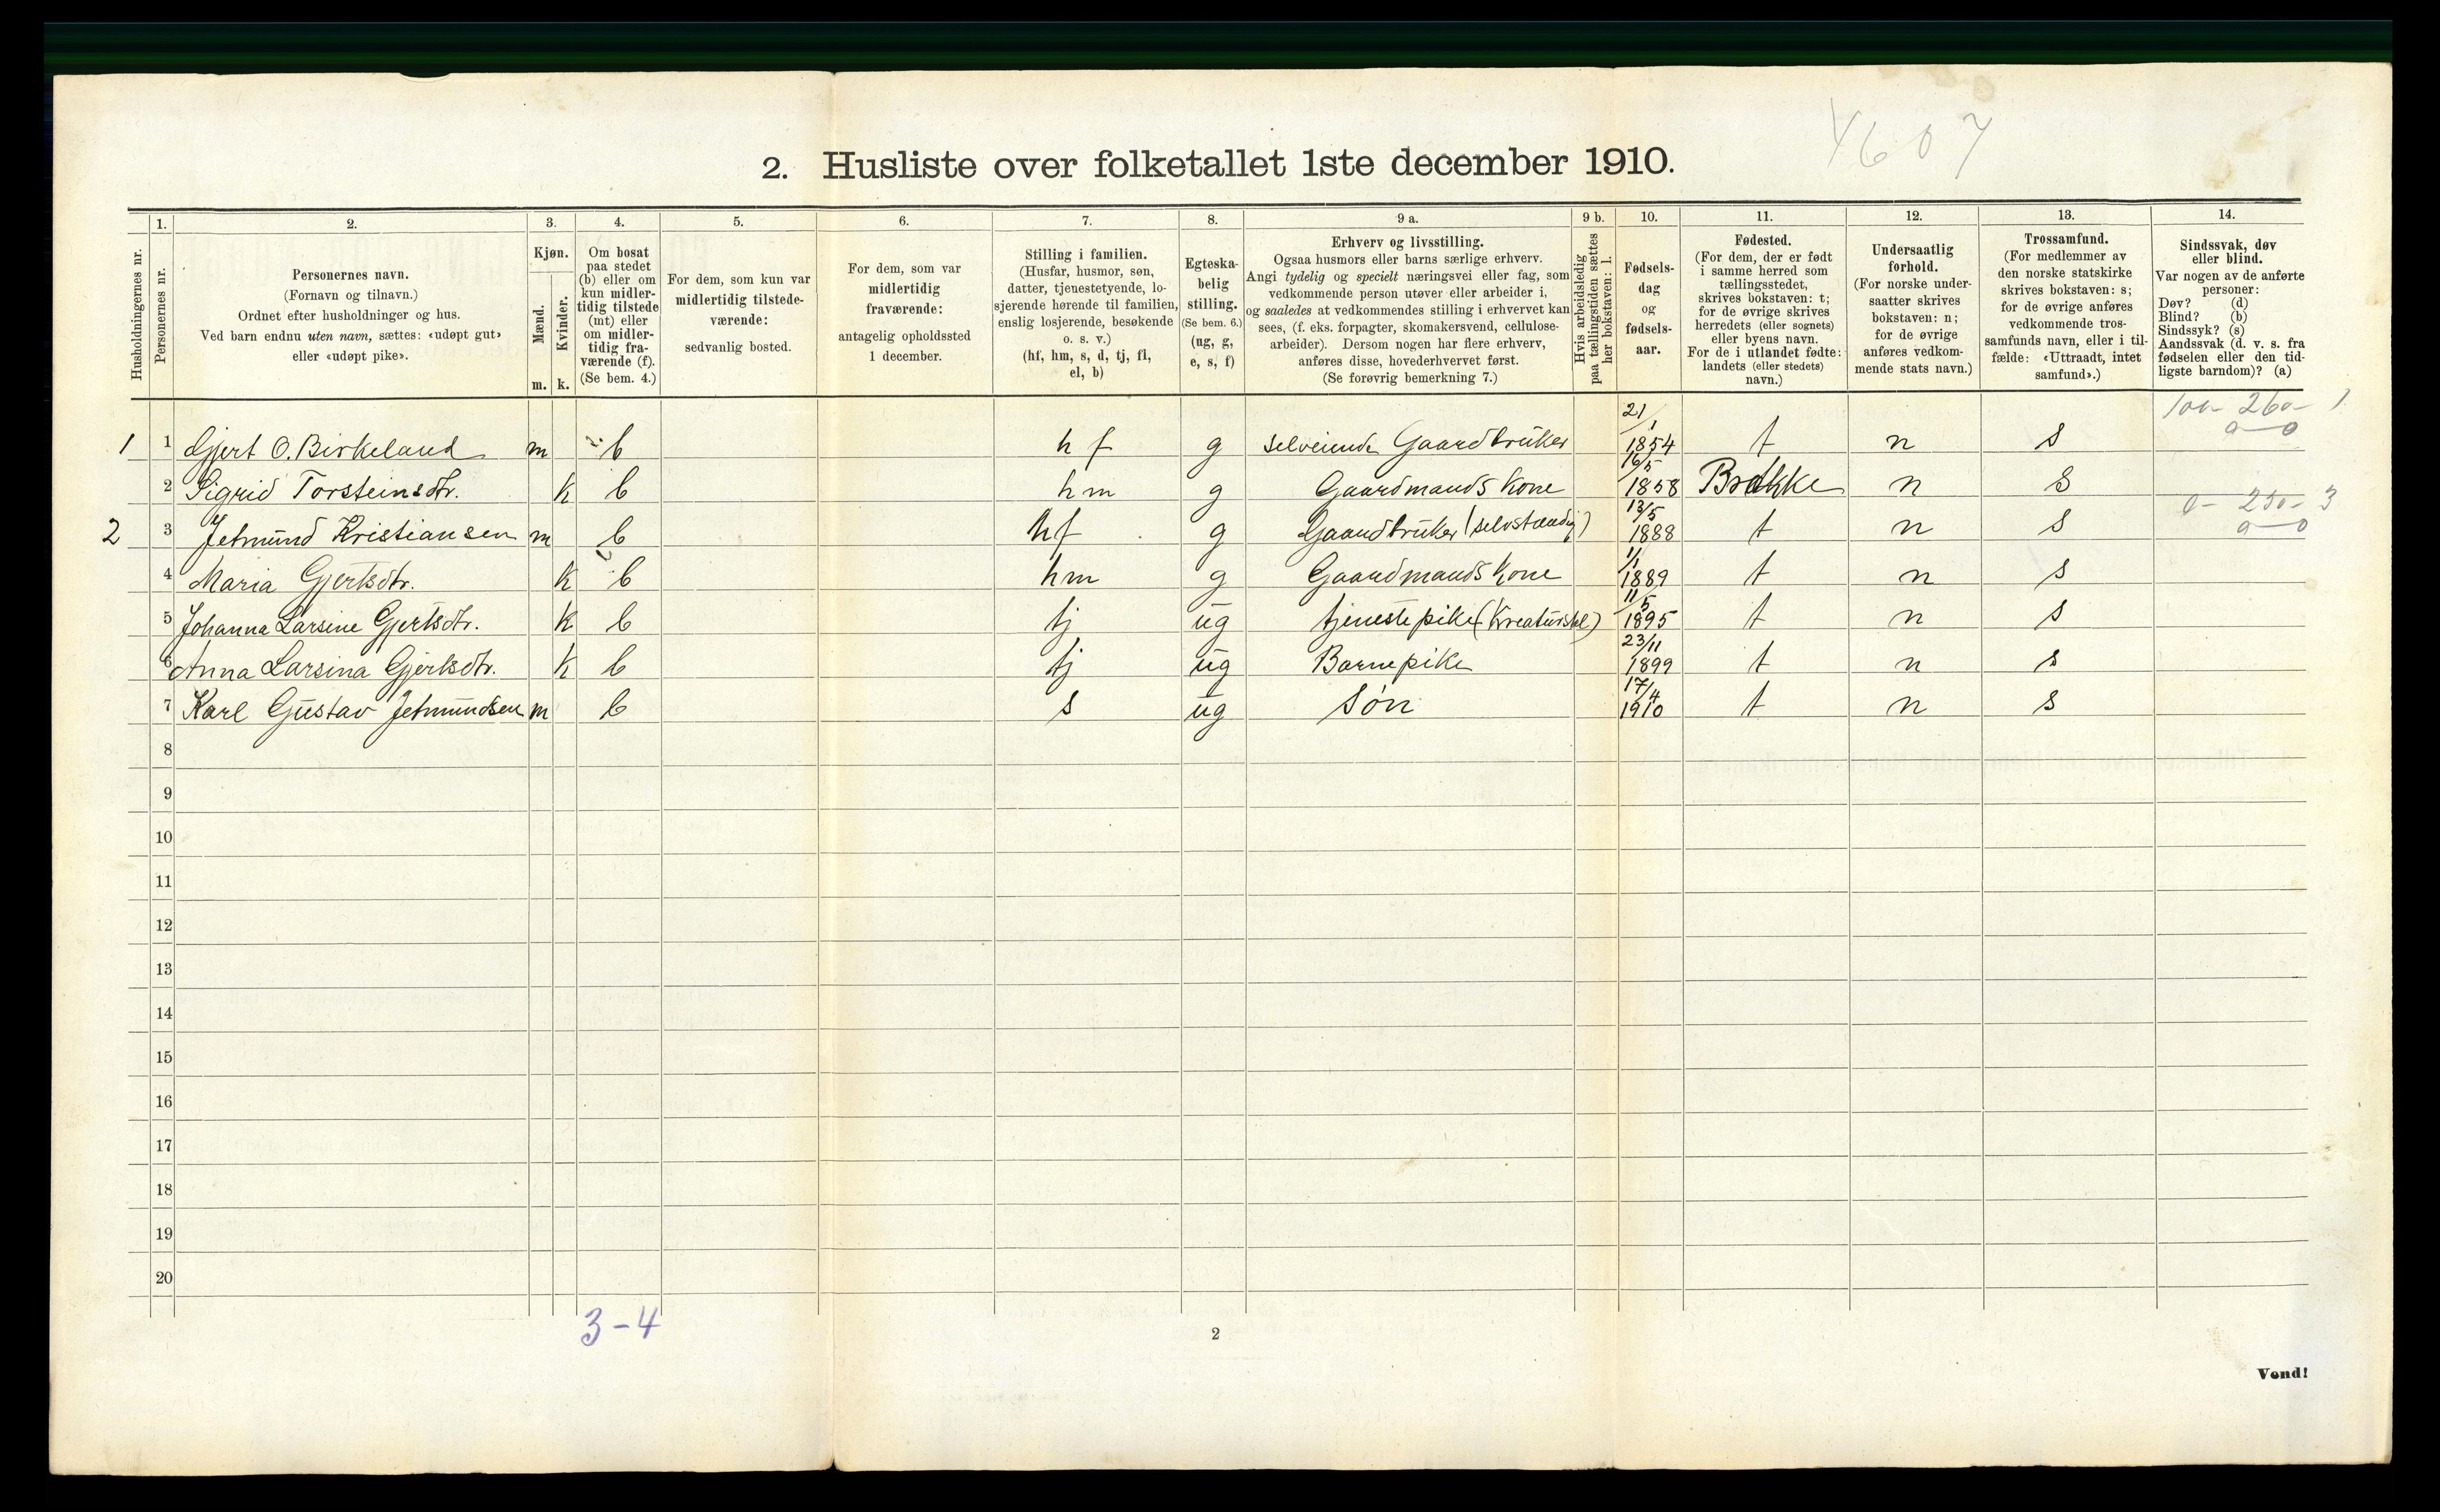 4607
2. Husliste over folketallet 1ste december 1910.
Husholdningernes nr.
1.
Personernes nr.
2.
Personernes navn.
(Fornavn og tilnavn.)
Ordnet efter husholdninger og hus.
Ved barn endnu uten navn, sættes: «udøpt gut»
eller «udøpt pike».
3.
Kjøn.
Mænd.
Kvinder.
m. k.
4.
Om bosat
paa stedet
(b) eller om
kun midler-
tidig tilstede
(mt) eller
om midler-
tidig fra-
værende (f).
(Se bem. 4.)
5.
For dem, som kun var
midlertidig tilstede-
værende:
sedvanlig bosted.
6.
For dem, som var
midlertidig
fraværende:
antagelig opholdssted
1 december.
7.
Stilling i familien.
(Husfar, husmor, søn,
datter, tjenestetyende, lo-
sjerende hørende til familien,
enslig losjerende, besøkende
o. s. v.)
(hf, hm, s, d, tj, fl,
el, b)
8.
Egteska-
belig
stilling.
(Se bem. 6.)
(ug, g,
e, s, f)
9 a.
Erhverv og livsstilling.
Ogsaa husmors eller barns særlige erhverv.
Angi tydelig og specielt næringsvei eller fag, som
vedkommende person utøver eller arbeider i,
og saaledes at vedkommendes stilling i erhvervet kan
sees, (f. eks. forpagter, skomakersvend, cellulose-
arbeider). Dersom nogen har flere erhverv,
anføres disse, hovederhvervet først.
(Se forøvrig bemerkning 7.)
9 b.
Hvis arbeidsledig
paa tællingstiden sættes
her bokstaven: l.
10.
Fødsels-
dag
og
fødsels-
aar.
11.
Fødested.
(For dem, der er født
i samme herred som
tællingsstedet,
skrives bokstaven: t;
for de øvrige skrives
herredets (eller sognets)
eller byens navn.
For de i utlandet fødte:
landets (eller stedets)
navn.)
12.
Undersaatlig
forhold.
(For norske under-
saatter skrives
bokstaven: n;
for de øvrige
anføres vedkom-
mende stats navn.)
13.
Trossamfund.
(For medlemmer av
den norske statskirke
skrives bokstaven: s;
for de øvrige anføres
vedkommende tros-
samfunds navn, eller i til-
fælde: «Uttraadt, intet
samfund».)
14.
Sindssvak, døv
eller blind.
Var nogen av de anførte
personer:
Døv? (d)
Blind? (b)
Sindssyk? (s)
Aandssvak (d. v. s. fra
fødselen eller den tid-
ligste barndom)? (a)
100- 260- 1
0-0
1 1 Gjert O. Birkeland m b hf g selveiende Gaardbruker 21/1 1854 t n s
2 Sigrid Torsteinsdtr. k b hm g Gaardmands kone 16/5 1858 Brokke n s
0- 250- 3
0-0
2 3 Jetmund Kristiansen m b hf g Gaardbruker (selvstændig) 13/5 1888 t n s
4 Maria Gjertsdtr. k b hm g Gaardmands kone 1/1 1889 t n s
5 Johanna Larsine Gjertsdtr. k b tj ug tjenestepike (Kreaturstel) 11/5 1895 t n s
6 Anna Larsina Gjertsdtr. k b tj ug Barnepike 23/11 1899 t n s
7 Karl Gustav Jetmundsen m b s ug søn 17/4 1910 t n s
8
9
10
11
12
13
14
15
16
17
18
19
20
3-4
2
Vend!